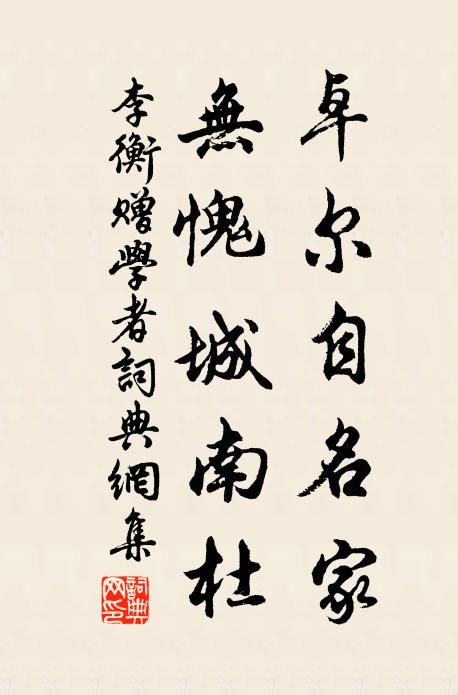 卓尔自名家
無愧城南杜
李衡赠學者詞典網集
詞典網印